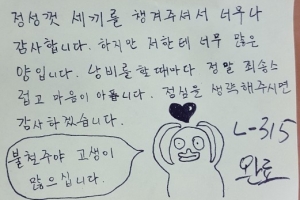 정성껏 세끼를 챙겨주셔서 너무나
감사합니다. 하지만 저한테 너무 많은
양입니다. 낭비를 할때마다 정말 죄송스
럽고 마음이 아픕니다. 점심은 생략해주시면
감사하겠습니다.
L-315
완료
불철주야 고생이
많으십니다.